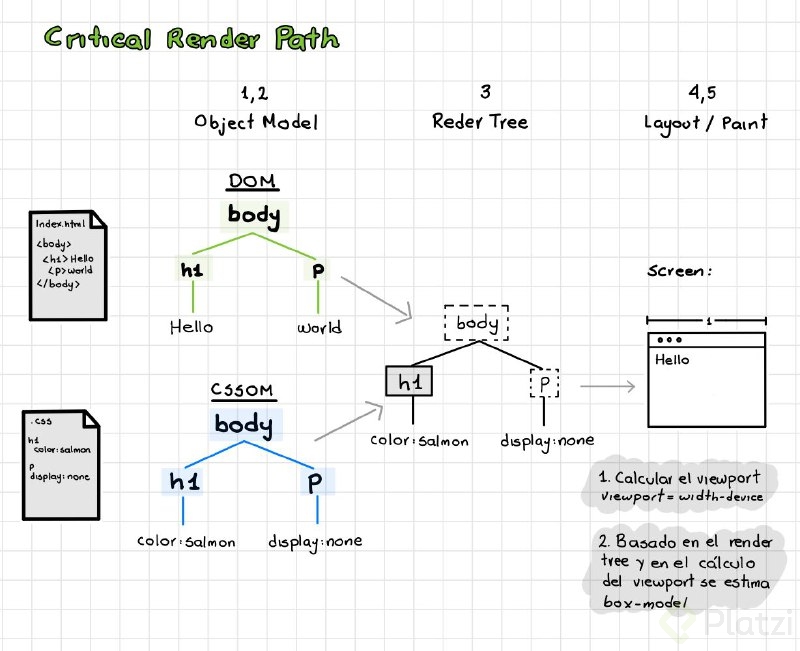 Critical Render Path
1,2
Object Model
3
Reder Tree
4,5
Layout / Paint
DOM
body
h1
p
Hello
world
Index.html
<body>
<h1>Hello
<p>world
</body>
CSSOM
body
h1
p
color:salmon
display:none
.css
h1
color:salmon
p
display:none
body
h1
p
color:salmon
display:none
Screen:
1
Hello
1. Calcular el viewport
viewport = width-device
2. Basado en el render
tree y en el cálculo
del viewport se estima
box-model
Platzi